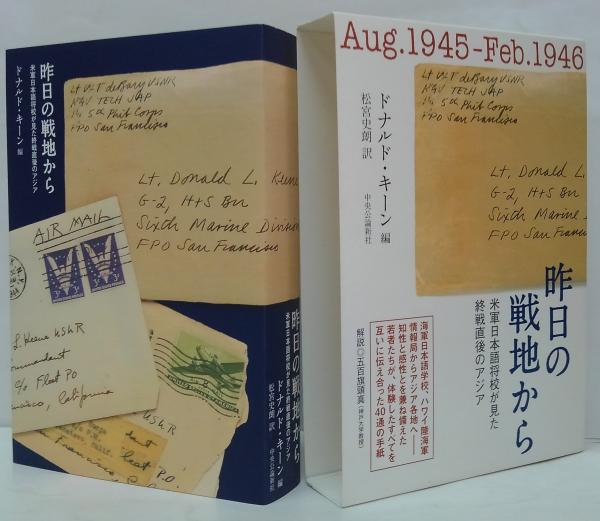 昨日の戦地から
米軍日本語将校が見た終戦直後のアジア
ドナルド・キーン 編
Lt WT deBary USNR
NAV TECH JAP
5th Phib Corps
FPO San Francisco
Lt. Donald L. Keene
G-2, H+S Bn
Sixth Marine Division
FPO San Francisco
AIR MAIL
3¢
3¢
L. Keene USNR
c/o Fleet P.O.
California
昨日の戦地から
米軍日本語将校が見た終戦直後のアジア
ドナルド・キーン 編
松宮史朗 訳
中央公論新社
Aug.1945-Feb.1946
Lt WT deBary USNR
NAV TECH JAP
5th Phib Corps
FPO San Francisco
ドナルド・キーン 編
松宮史朗 訳
中央公論新社
Lt. Donald L.
G-2, H+S Bn
Sixth Marine
FPO San Fran
昨日の
戦地から
米軍日本語将校が見た
終戦直後のアジア
海軍日本語学校、ハワイ陸海軍
情報局からアジア各地へ――
知性と感性とを兼ね備えた
若者たちが、体験したすべてを
互いに伝え合った40通の手紙
解説◎五百旗頭真(神戸大学教授)